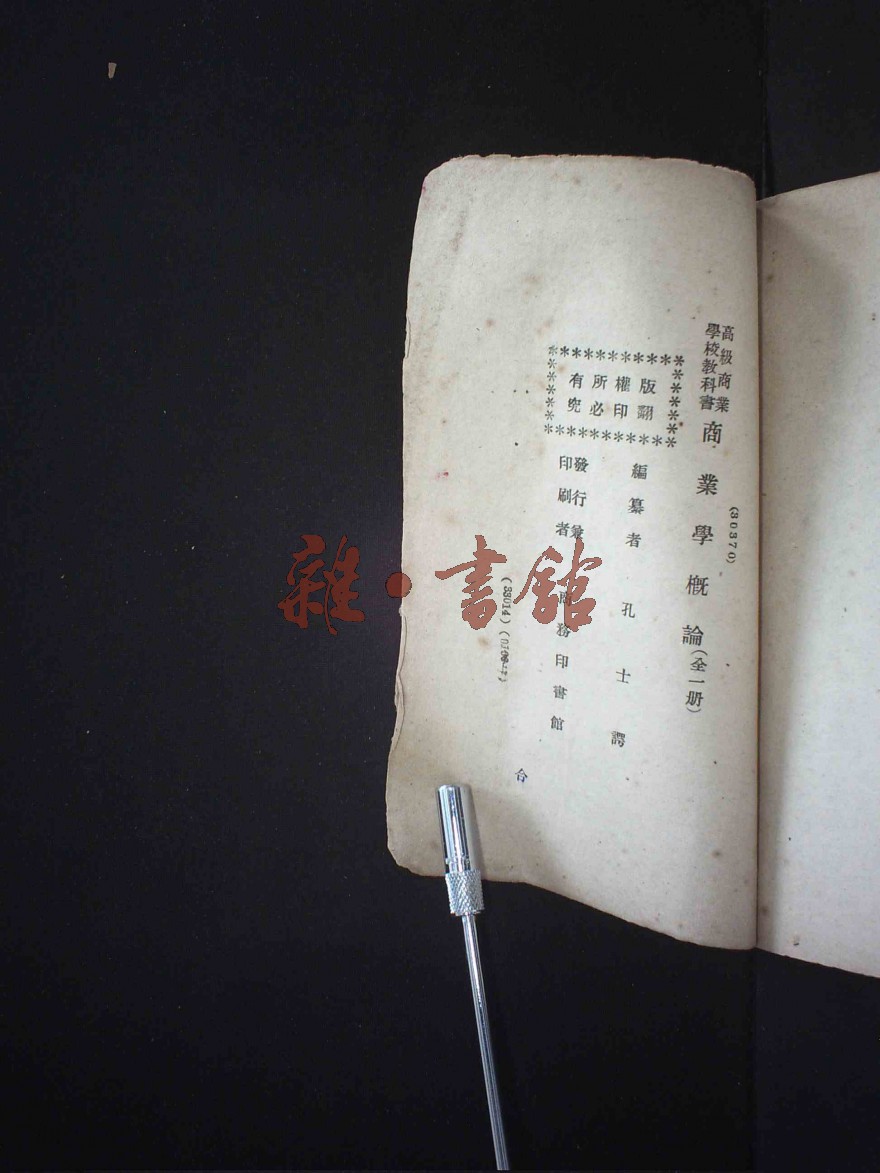 (30370)
高級商業
學校教科書
商業學概論(全一册)
版權所有
翻印必究
編纂者 孔士諤
發行兼
印刷者
商務印書館
(33014)
合
雜·書館